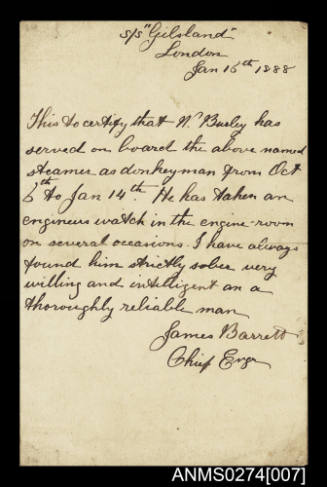 s/s "Gilsland"
London
Jan 15th 1888
This to certify that W. Burley has
served on board the above named
steamer as donkeyman from Oct
6th to Jan 14th. He has taken an
engineers watch in the engine-room
on several occasions. I have always
found him strictly sober very
willing and intelligent an a
thoroughly reliable man
James Barrett
Chief Engr
ANMS0274[007]